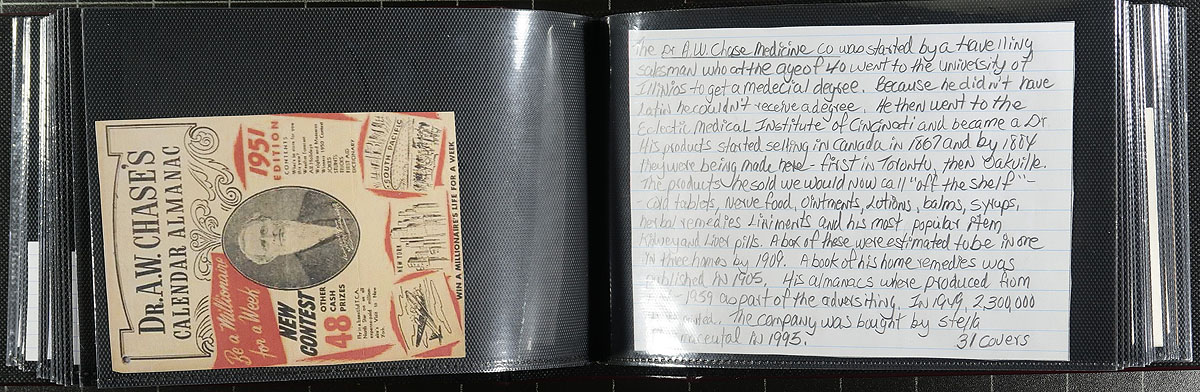 DR. A.W. CHASE'S
CALENDAR ALMANAC
1951
EDITION
CONTENTS
SOUTH PACIFIC
NEW YORK
Be a Millionaire
for a Week
NEW
CONTEST
48
OTHER
CASH
PRIZES
WIN A MILLIONAIRE'S LIFE FOR A WEEK
The Dr A.W. Chase Medicine co was started by a travelling
salesman who at the age of 40 went to the university of
to get a medecial degree. Because he didn't have
Latin he couldn't receive a degree. He then went to the
Eclectic Medical Institute of Cincinati and became a Dr
His products started selling in Canada in 1867 and by 1884
they were being made here - first in Toronto, then Oakville.
The products he sold we would now call "off the shelf" -
- cold tablets, Nerve food, Ointments, Lotions, balms, syrups,
herbal remedies Liniments and his most popular item
Kidney and Liver pills. A box of these were estimated to be in one
in three homes by 1909. A book of his home remedies was
published in 1905. His almanacs where produced from
1959 as part of the adversiting. In 1949, 2,300,000
The company was bought by Stella
in 1993.
31 covers